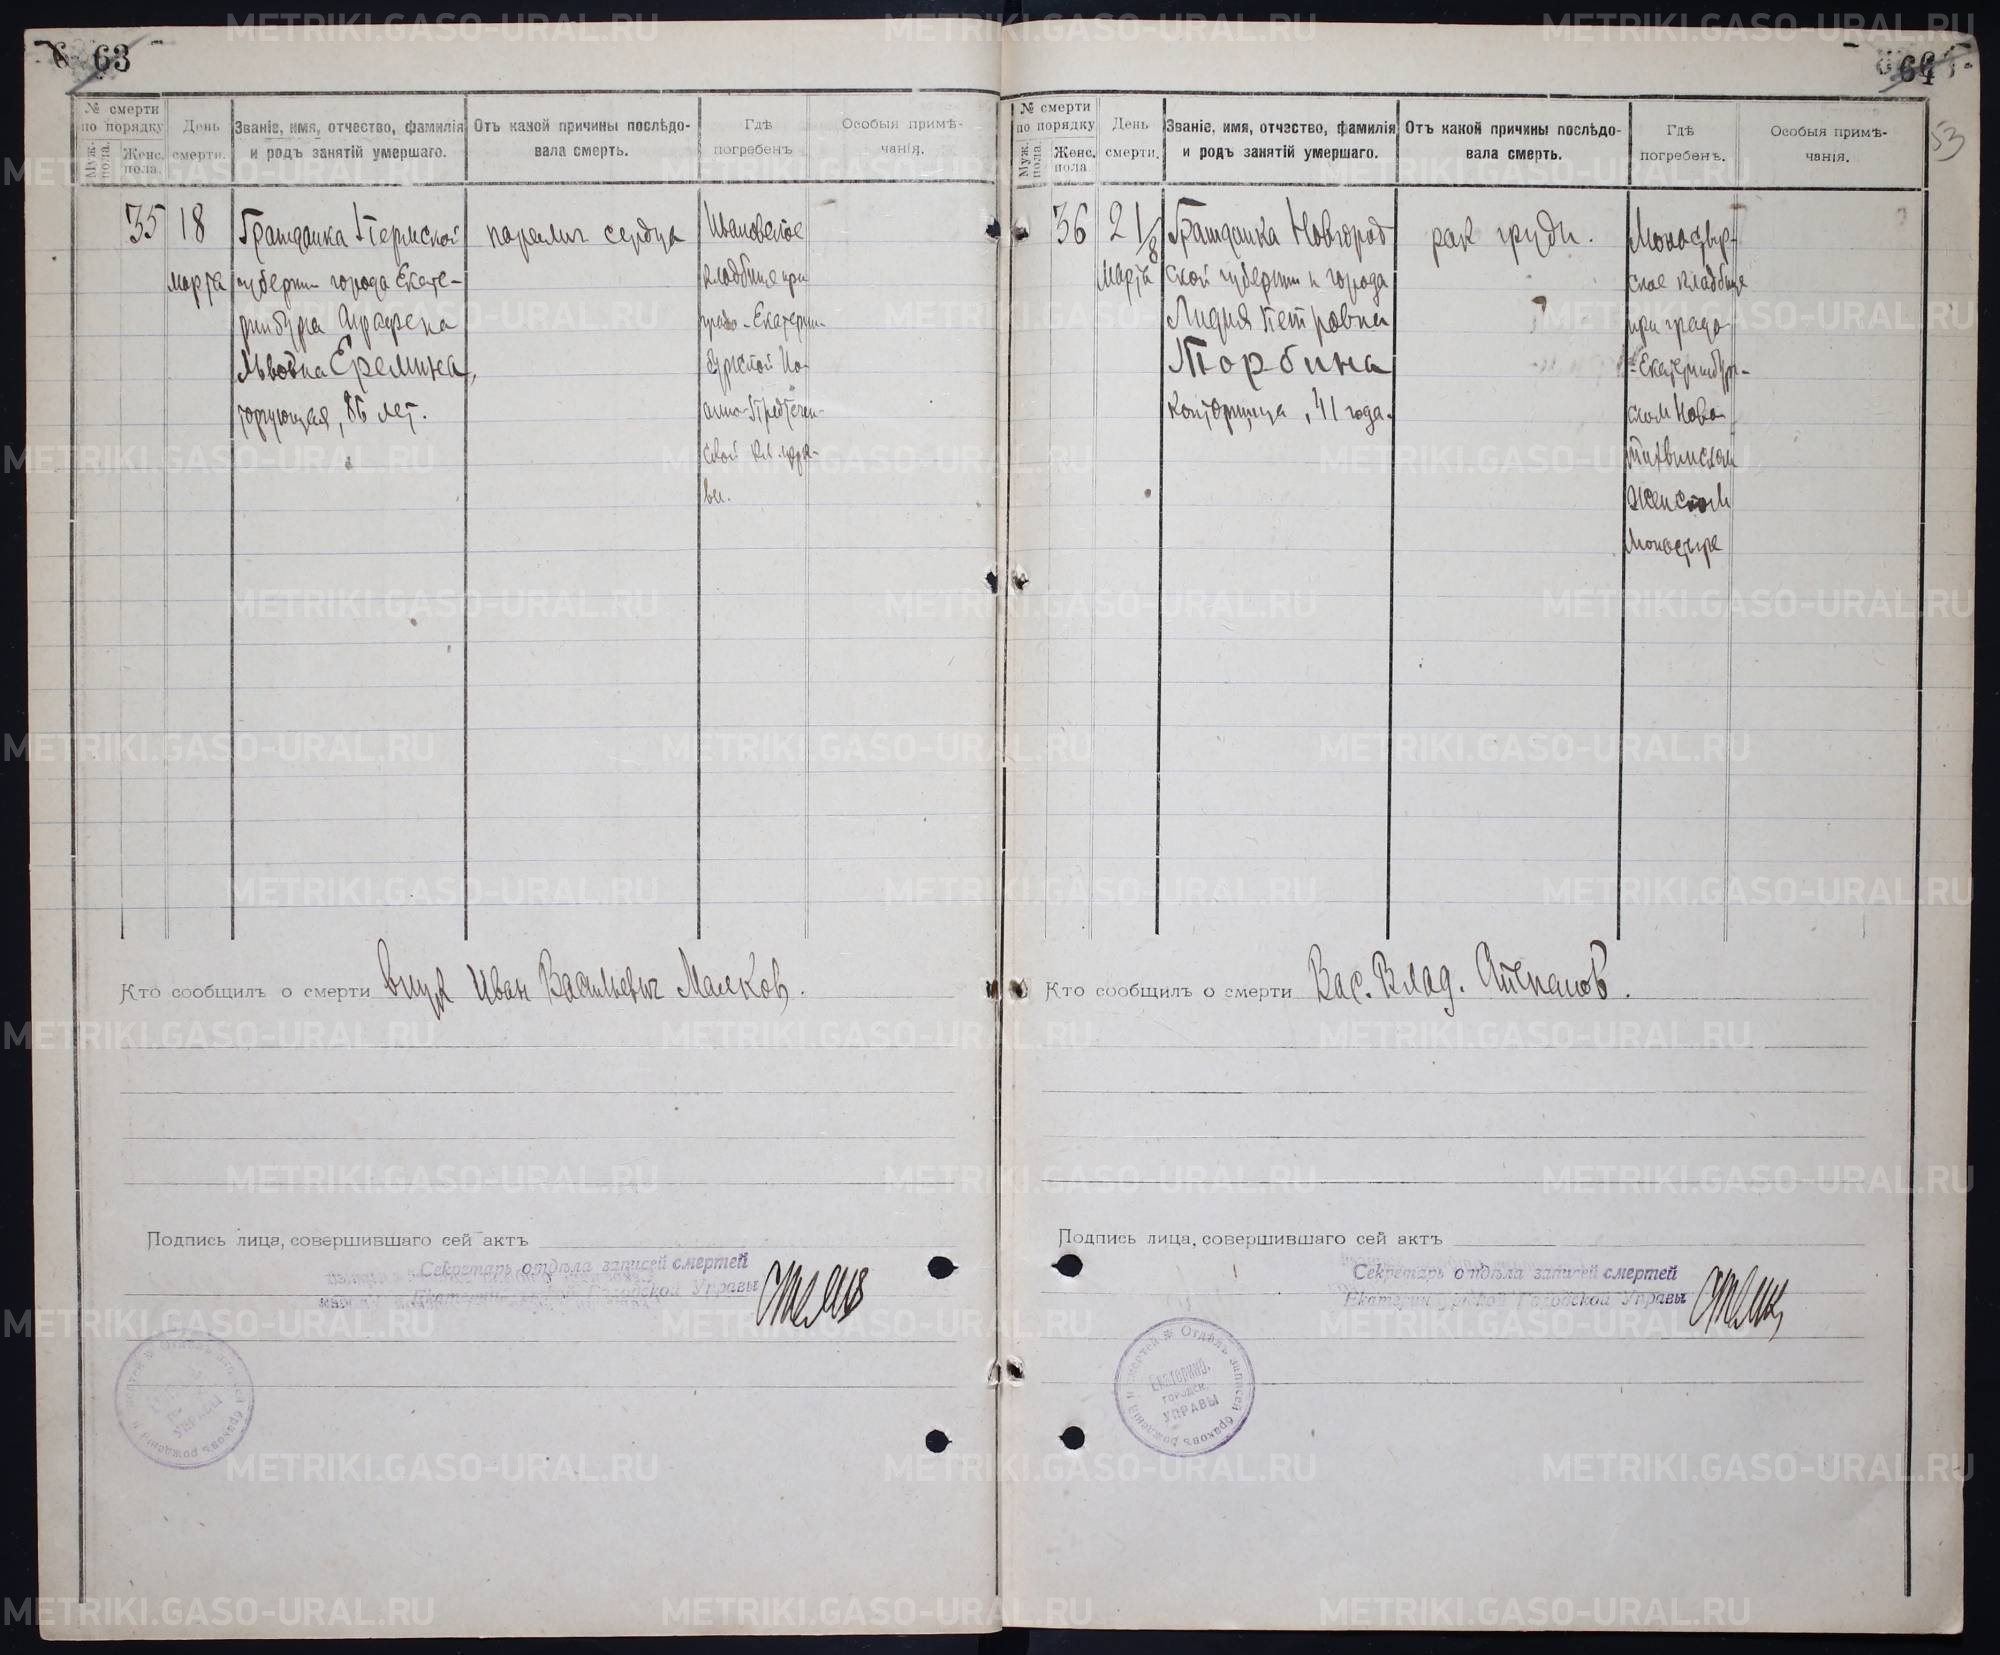 63
№ смерти
по порядку
Муж. пола.
Женс. пола.
День
смерти.
Званіе, имя, отчество, фамилія
и родъ занятій умершаго.
Отъ какой причины послѣдо-
вала смерть.
Гдѣ
погребенъ
Особыя примѣ-
чанія.
35
18
марта
Гражданка Пермской
губернии города Екате-
ринбурга Аграфена
Львовна Еремина,
торгующая, 85 лет.
паралич сердца
Ивановское
кладбище при
градо-Екатерин-
бургской Ио-
анно-Предтечен-
ской кл. церк-
ви.
Кто сообщилъ о смерти внук Иван Васильевич Малков.
Подпись лица, совершившаго сей актъ
Секретарь отдѣла записей смертей
Екатеринбургской Городской Управы
64
53
№ смерти
по порядку
Муж. пола.
Женс. пола.
День
смерти.
Званіе, имя, отчество, фамилія
и родъ занятій умершаго.
Отъ какой причины послѣдо-
вала смерть.
Гдѣ
погребенъ.
Особыя примѣ-
чанія.
36
21/8
марта
Гражданка Новгород
ской губернии и города
Лидия Петровна
Торбина
конторщица, 41 года.
рак груди.
Монастыр-
ское кладбище
при градо
-Екатеринбург-
ском Ново-
Тихвинском
женском
монастыре
Кто сообщилъ о смерти Вас. Влад. Степанов.
Подпись лица, совершившаго сей актъ
Секретарь отдѣла записей смертей
Екатеринбургской Городской Управы
Отдѣлъ записей браковъ рожденій и смертей
Екатеринб.
городск.
УПРАВЫ
METRIKI.GASO-URAL.RU